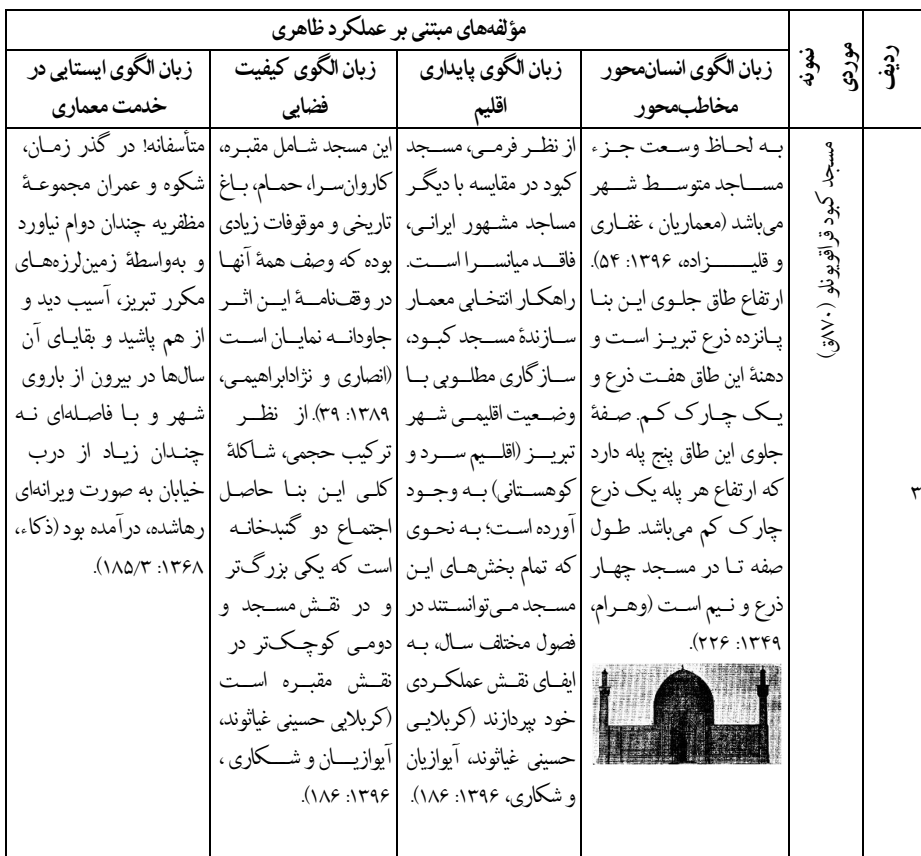 ردیف
نمونه
موردی
مؤلفه‌های مبتنی بر عملکرد ظاهری
زبان الگوی انسان‌محور
مخاطب‌محور
زبان الگوی پایداری
اقلیم
زبان الگوی کیفیت
فضایی
زبان الگوی ایستایی در
خدمت معماری
۳
مسجد کبود قراقویونلو (۸۷۰ق)
به لحاظ وسعت جزء
مساجد متوسط شهر
می‌باشد (معماریان ، غفاری
و قلیزاده، ۱۳۹۶: ۵۴).
ارتفاع طاق جلوی این بنا
پانزده ذرع تبریز است و
دهنهٔ این طاق هفت ذرع و
یک چارک کم. صفهٔ
جلوی این طاق پنج پله دارد
که ارتفاع هر پله یک ذرع
چارک کم می‌باشد. طول
صفه تا در مسجد چهار
ذرع و نیم است (وهرام،
۱۳۴۹: ۲۲۶).
از نظر فرمی، مسجد
کبود در مقایسه با دیگر
مساجد مشهور ایرانی،
فاقد میانسرا است.
راهکار انتخابی معمار
سازندهٔ مسجد کبود،
سازگاری مطلوبی با
وضعیت اقلیمی شهر
تبریز (اقلیم سرد و
کوهستانی) به وجود
آورده است؛ به نحوی
که تمام بخش‌های این
مسجد می‌توانستند در
فصول مختلف سال، به
ایفای نقش عملکردی
خود بپردازند (کربلایی
حسینی غیاثوند، آیوازیان
و شکاری، ۱۳۹۶: ۱۸۶).
این مسجد شامل مقبره،
کاروان‌سرا، حمام، باغ
تاریخی و موقوفات زیادی
بوده که وصف همهٔ آنها
در وقف‌نامهٔ این اثر
جاودانه نمایان است
(انصاری و نژادابراهیمی،
۱۳۸۹: ۳۹). از نظر
ترکیب حجمی، شاکلهٔ
کلی این بنا حاصل
اجتماع دو گنبدخانه
است که یکی بزرگ‌تر
و در نقش مسجد و
دومی کوچک‌تر در
نقش مقبره است
(کربلایی حسینی غیاثوند،
آیوازیان و شکاری ،
۱۳۹۶: ۱۸۶).
متأسفانه! در گذر زمان،
شکوه و عمران مجموعهٔ
مظفریه چندان دوام نیاورد
و به‌واسطهٔ زمین‌لرزه‌های
مکرر تبریز، آسیب دید و
از هم پاشید و بقایای آن
سال‌ها در بیرون از باروی
شهر و با فاصله‌ای نه
چندان زیاد از درب
خیابان به صورت ویرانه‌ای
رهاشده، درآمده بود (ذکاء،
۱۳۶۸: ۱۸۵/۳).